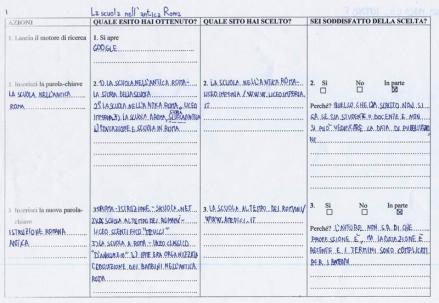 1
La scuola nell'antica Roma
AZIONI
QUALE ESITO HAI OTTENUTO?
QUALE SITO HAI SCELTO?
SEI SODDISFATTO DELLA SCELTA?
1. Lancia il motore di ricerca
1. Si apre
GOOGLE
2. Inserisci la parola-chiave
LA SCUOLA NELL'ANTICA
ROMA
2. 1) LA SCUOLA NELL'ANTICA ROMA-
LA STORIA DELLA SCUOLA
2) LA SCUOLA NELL'ANTICA ROMA, LICEO
IMPERIA 3) LA SCUOLA A ROMA,
4) EDUCAZIONE E SCUOLA IN ROMA
2. LA SCUOLA NELL'ANTICA ROMA-
LICEO IMPERIA / WWW.LICEOIMPERIA.
IT
2. Sì No In parte
Perché? QUELLO CHE HA SCRITTO NON SI
SA SE SIA STUDENTE O DOCENTE E NON
SI PUÒ LA DATA DI
NE
3. Inserisci la nuova parola-
chiave
ISTRUZIONE ROMANA
ANTICA
ROMA-ISTRUZIONE-SKUOLA.NET
SCUOLA AL TEMPO DEI ROMANI-
LICEO SCIENTIFICO
3) LA SCUOLA A ROMA - LICEO CLASSICO
"D'ANNUNZIO" 4) COME ERA ORGANIZZATA
L'EDUCAZIONE DEI BAMBINI NELL'ANTICA
ROMA
3. LA SCUOLA AL TEMPO DEI ROMANI/
3. Sì No In parte
Perché? L'AUTORE NON SI SA DI CHE
PROFESSIONE È, MA LA
RECENTE E I TERMINI SONO COMPLICATI
PER I BAMBINI